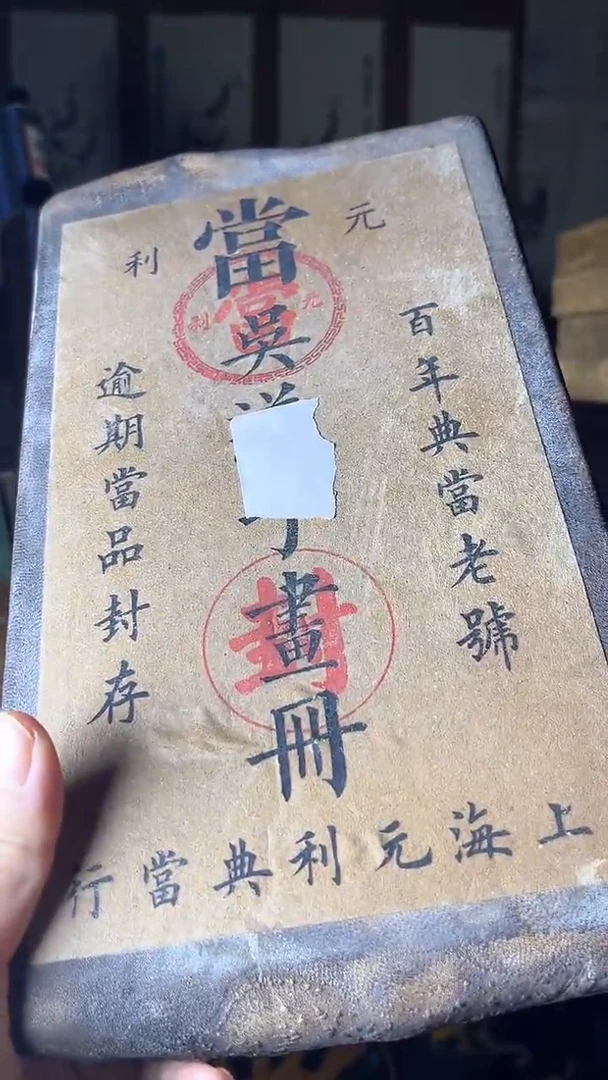 元利
百年典當老號
當吳
畫冊
逾期當品封存
元當利
封
上海元利典當行